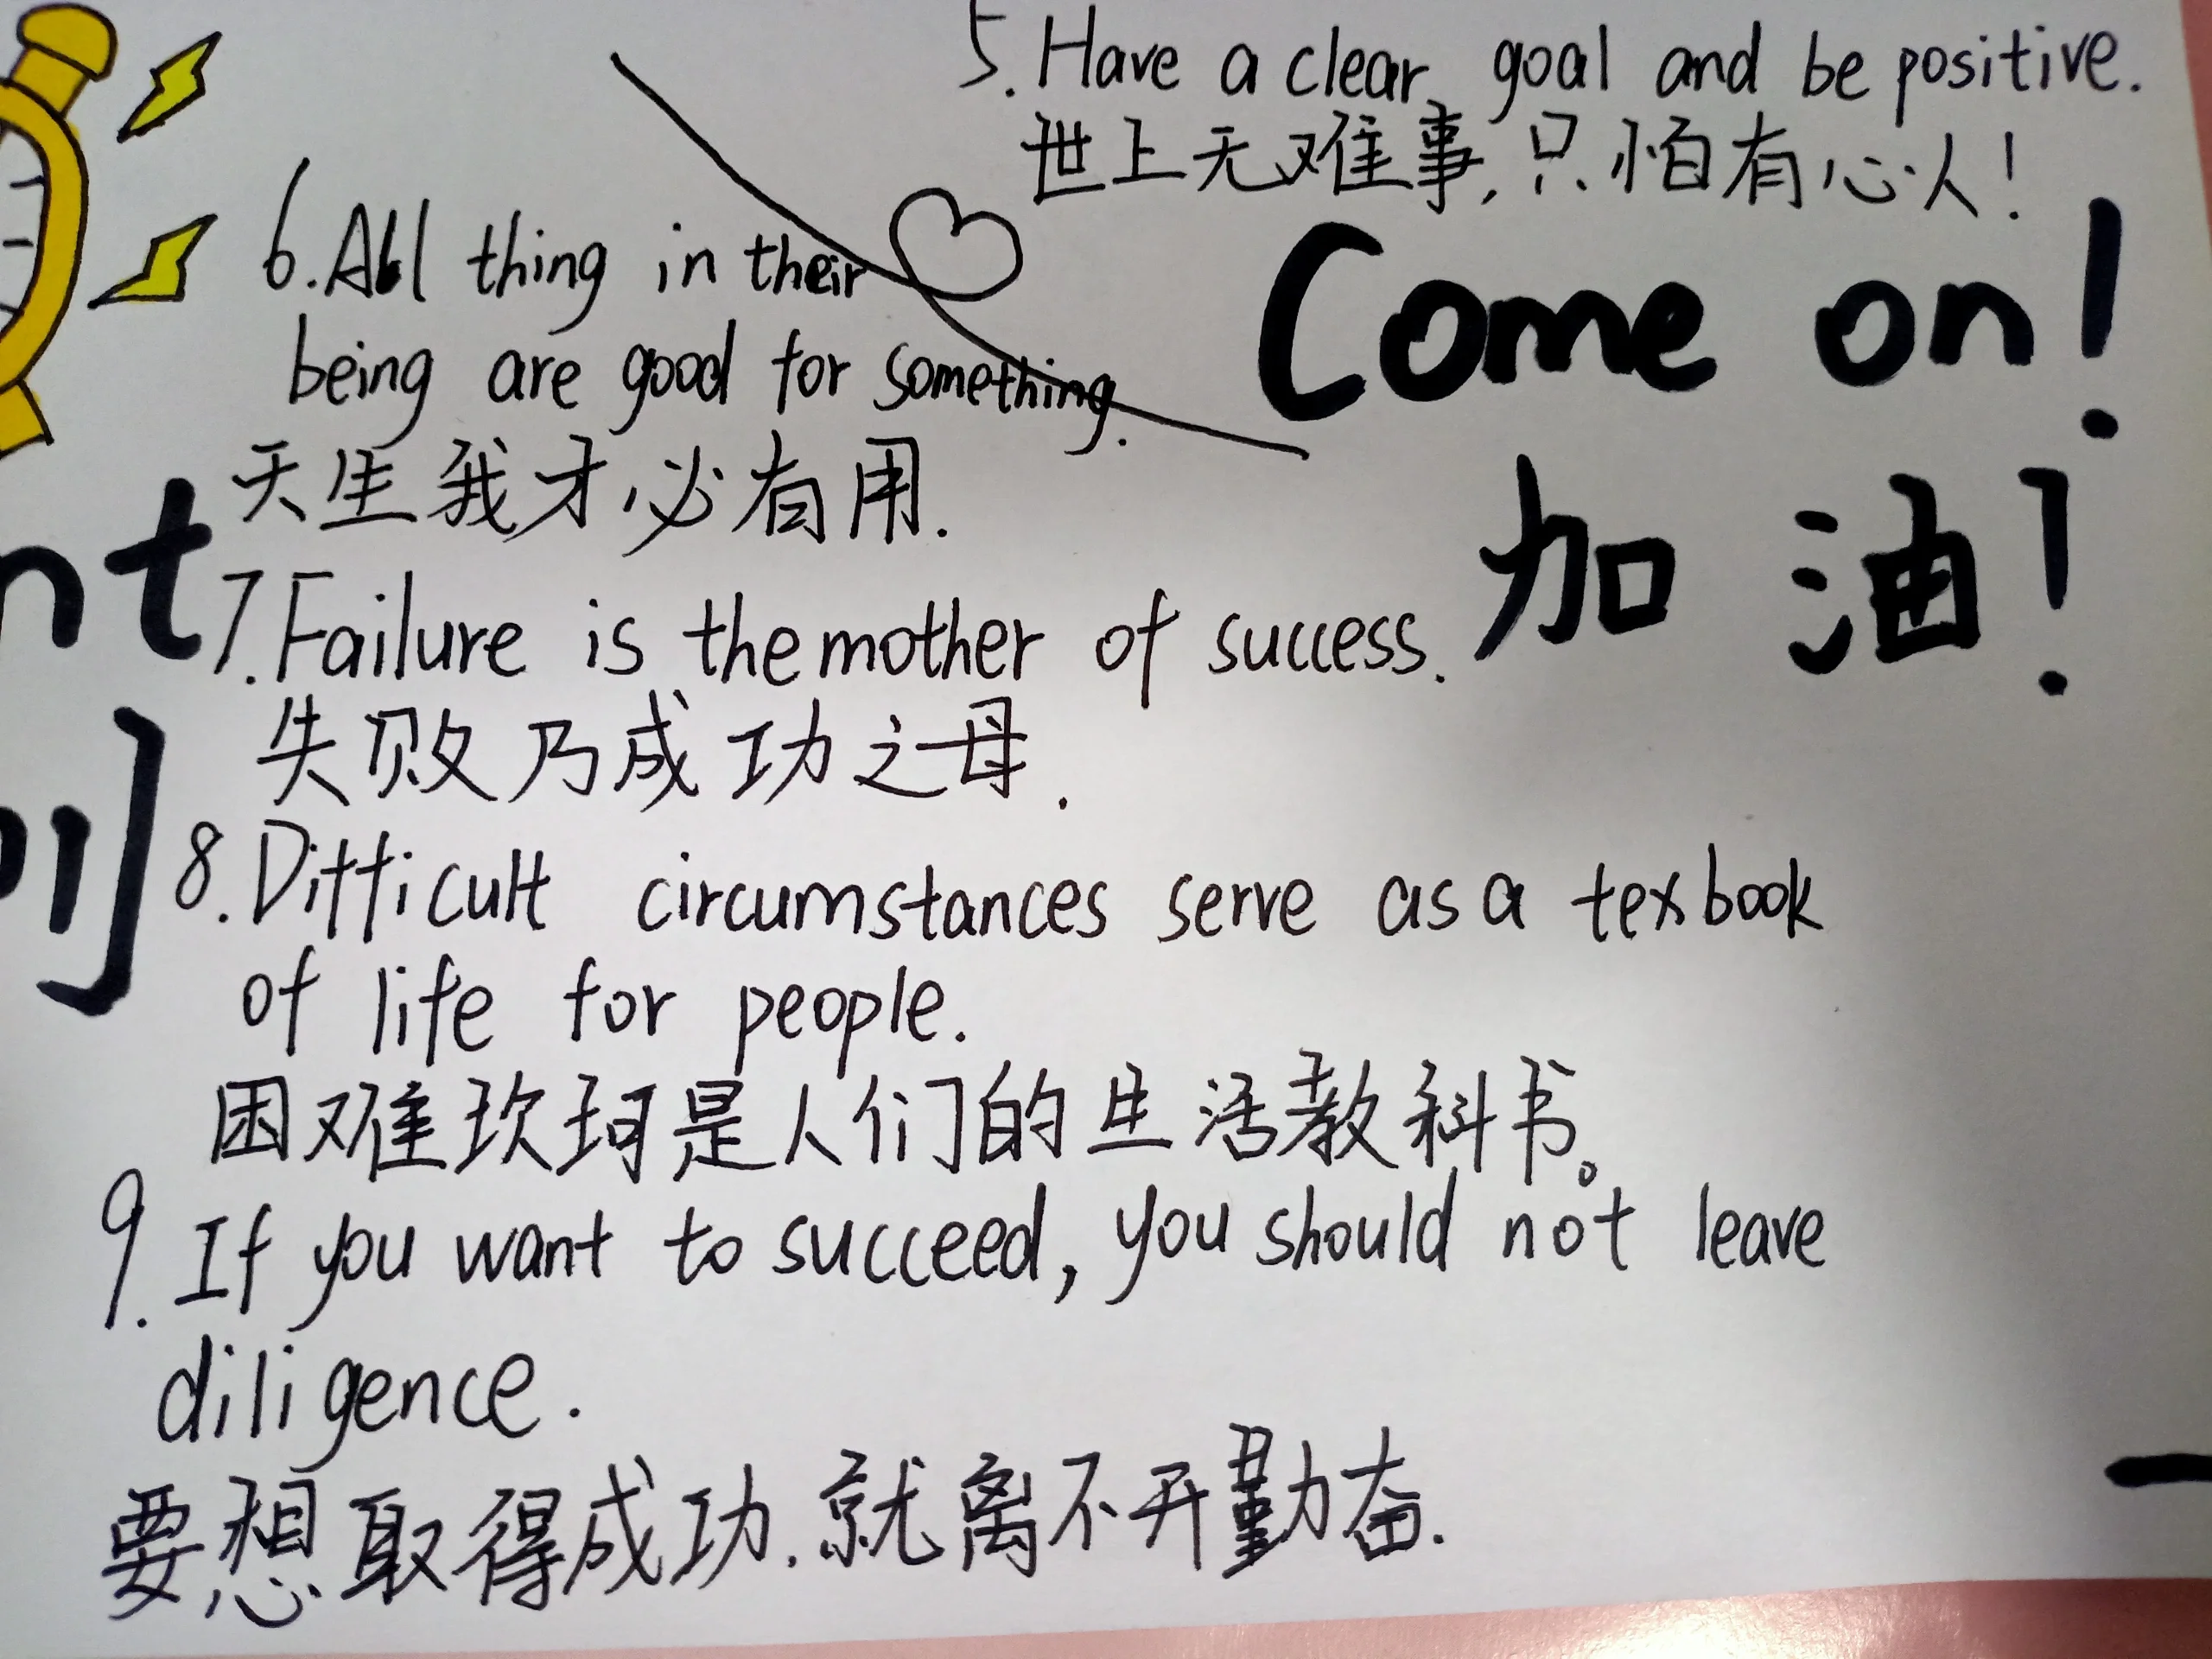 5. Have a clear goal and be positive.
世上无难事,只怕有心人!
6. All thing in their
being are good for something.
天生我才必有用.
Come on!
加油!
7. Failure is the mother of success.
失败乃成功之母.
8. Difficult circumstances serve as a texbook
of life for people.
困难坎坷是人们的生活教科书。
9. If you want to succeed, you should not leave
diligence.
要想取得成功.就离不开勤奋.